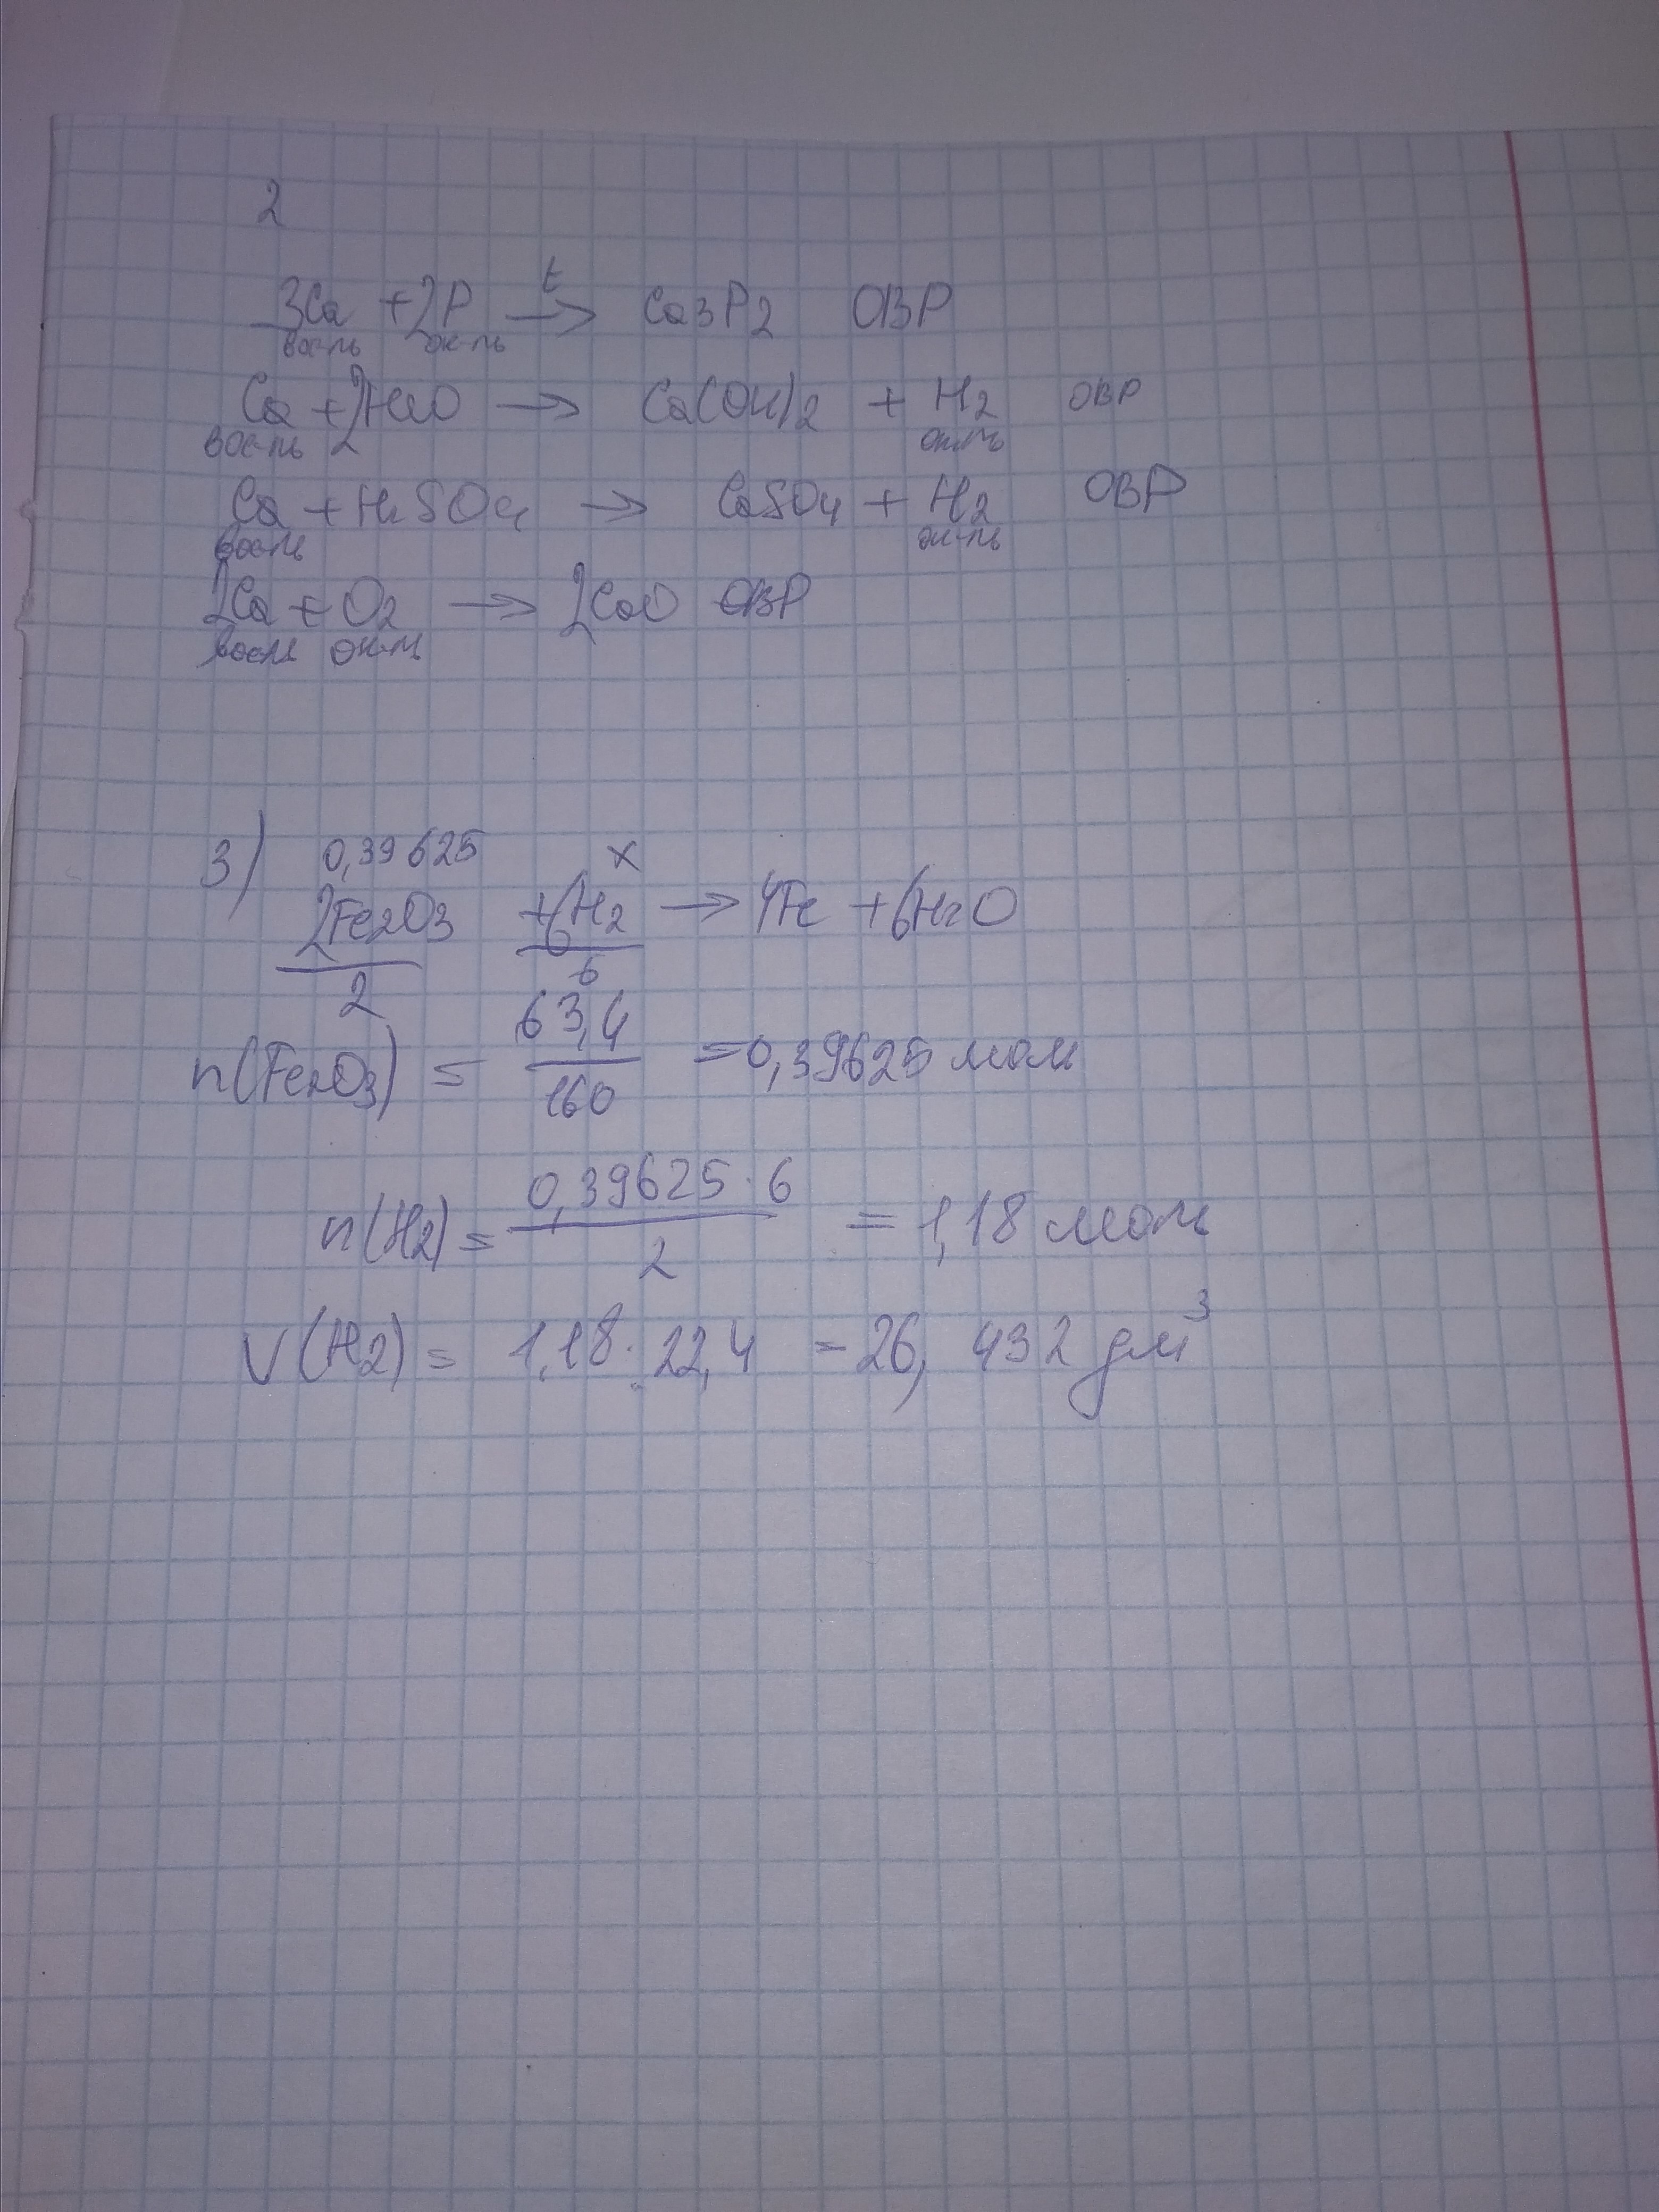 2
3Ca + 2P t→ Ca3P2 ОВР
вос-ль ок-ль
Ca + 2H2O → Ca(OH)2 + H2 ОВР
вос-ль ок-ль
Ca + H2SO4 → CaSO4 + H2 ОВР
вос-ль ок-ль
2Ca + O2 → 2CaO ОВР
вос-ль ок-ль
3) 0,39625 x
2Fe2O3 + 6H2 → 4Fe + 6H2O
2 6
n(Fe2O3) = 63,4/160 = 0,39625 моль
n(H2) = 0,39625 · 6/2 = 1,18 моль
V(H2) = 1,18 · 22,4 = 26,432 дм³